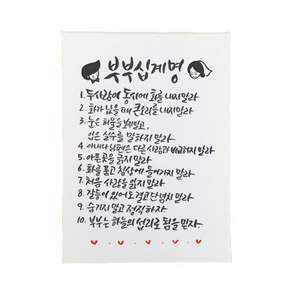 부부십계명
1. 두사람이 동시에 화를 내지말라
2. 화가 났을 때 큰소리를 내지말라
3. 눈은 허물을 보지말고,
입은 실수를 말하지말라
4. 아내나 남편은 다른 사람과 비교하지말라
5. 아픈곳을 긁지말라
6. 화를 품고 침상에 들어가지 말라
7. 처음 사랑을 잊지말라
8. 갈등이 있어도 결코 단념치 말라
9. 숨기지 말고 정직하자
10. 부부는 하늘의 섭리로 됨을 믿자